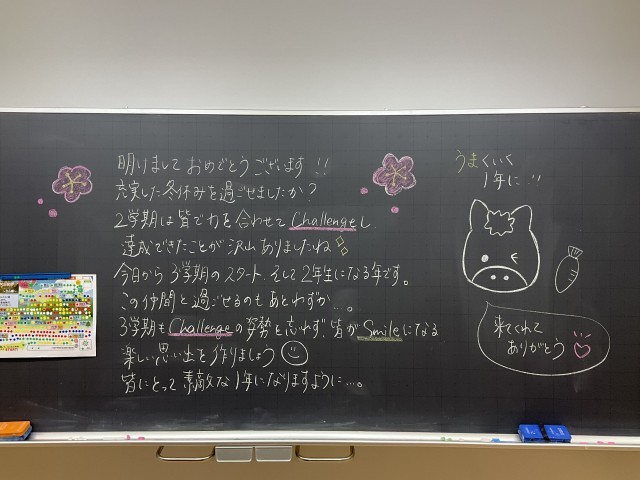 明けまして おめでとうございます!!
充実した冬休みを過ごせましたか?
2学期は皆で力を合わせて Challengeし
達成できたことが沢山ありましたね
今日から3学期のスタート、そして2年生になる年です。
この仲間と過ごせるのもあとわずか…。
3学期もChallengeの姿勢を忘れず、皆がSmileになる
楽しい思い出を作りましょう
皆にとって素敵な1年になりますように…。
うまくいく
1年に!!
来てくれて
ありがとう